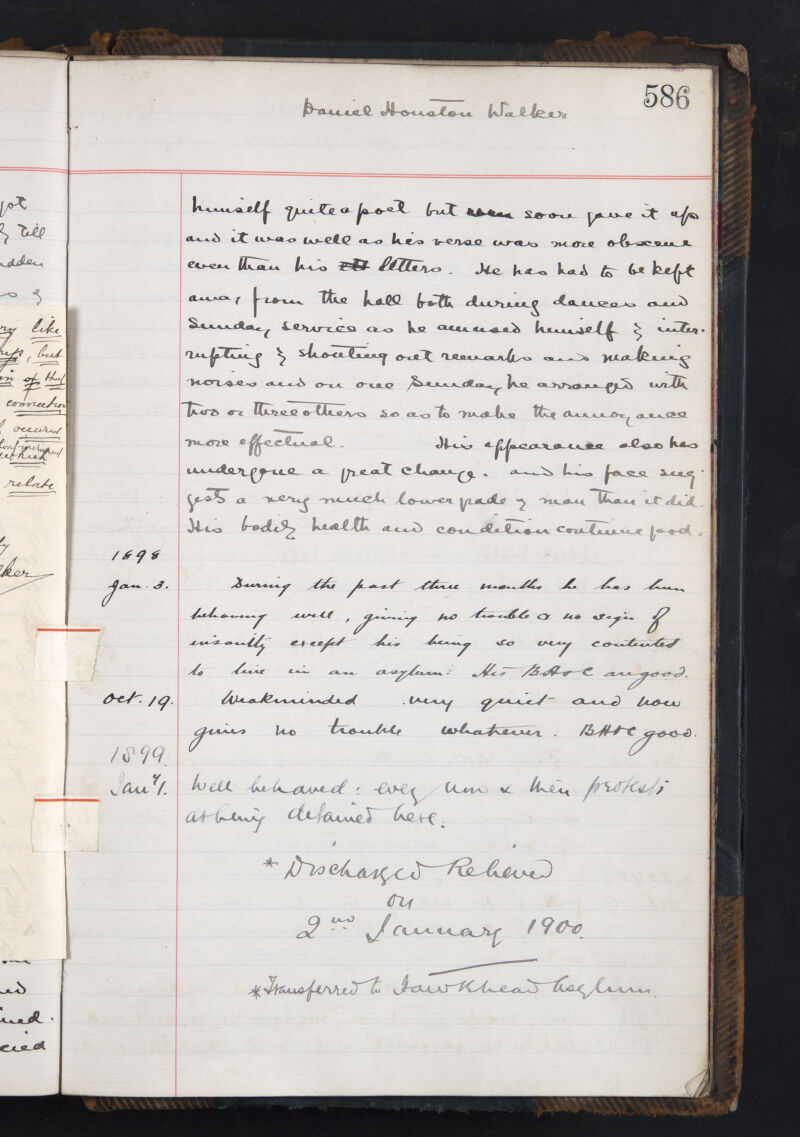 586
Daniel Houston Walker
himself quite a poet but soon gave it up
and it was well as his verse was more obscene
even than his letters. He has had to be kept
away from the hall both during dances and
Sunday service as he amused himself by inter-
rupting & shouting out remarks and making
noises and on one Sunday he arranged with
two or three others so as to make the annoyance
more effectual. His appearance also has
undergone a great change. and his face sug-
gests a very much lower grade of man than it did.
His bodily health and condition continue good.
1898
Jan. 3. During the past three months he has been
behaving well, giving no trouble or no sign of
insanity except his being so very contented
to live in an asylum. His B.H & C are good.
Oct. 19. Weakminded very quiet and now
gives no trouble whatever. BH & C good.
1899.
Jany 1. Well behaved: every now & then protests
at being detained here.
* Discharged Relieved
on
2nd January 1900.
* Transferred to Hawkhead Asylum.
got
tell
udden
ry like
but
in of that
connection
occurred
which
relate
ker